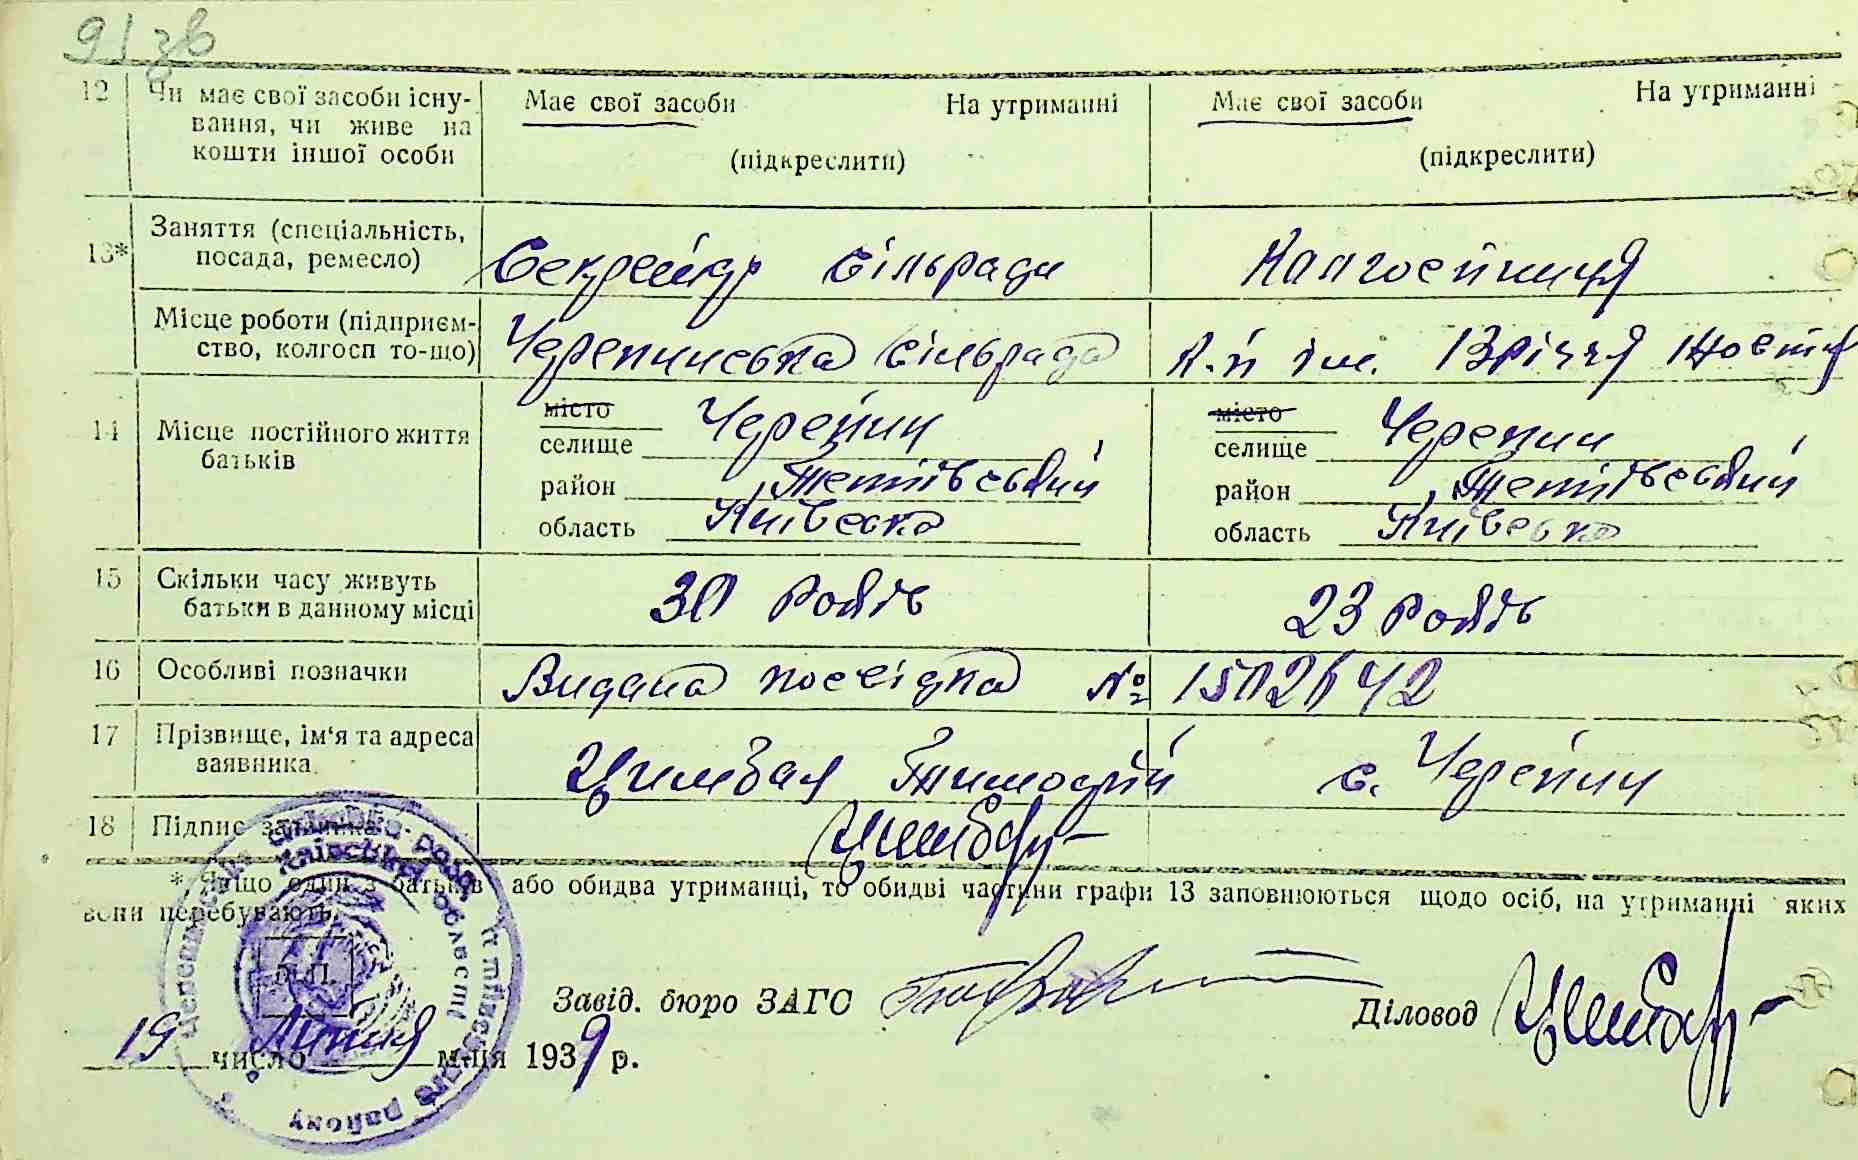 91 зв
12 Чи має свої засоби існу- Має свої засоби На утриманні Має свої засоби На утриманні
вання, чи живе на
кошти іншої особи (підкреслити) (підкреслити)
13* Заняття (спеціальність,
посада, ремесло) Секретар сільради Колгоспниця
Місце роботи (підприєм-
ство, колгосп то-що) Черепинська сільрада К-п ім. 13 річчя Жовтня
14 Місце постійного життя
батьків
місто Черепин місто Черепин
селище селище
район Тетіївський район Тетіївський
область Київська область Київська
15 Скільки часу живуть
батьки в данному місці 30 років 23 років
16 Особливі позначки Видана посвідка №
17 Прізвище, ім‘я та адреса
заявника Цимбал Тимофій с. Черепин
18 Підпис заявника Цимбал
* Якщо один з батьків або обидва утриманці, то обидві частини графи 13 заповнюються щодо осіб, на утриманні яких
вони перебувають.
М.П.
Завід. бюро ЗАГС Діловод Цимбал
19 число Липня м-ця 1939 р.
Київської області
району